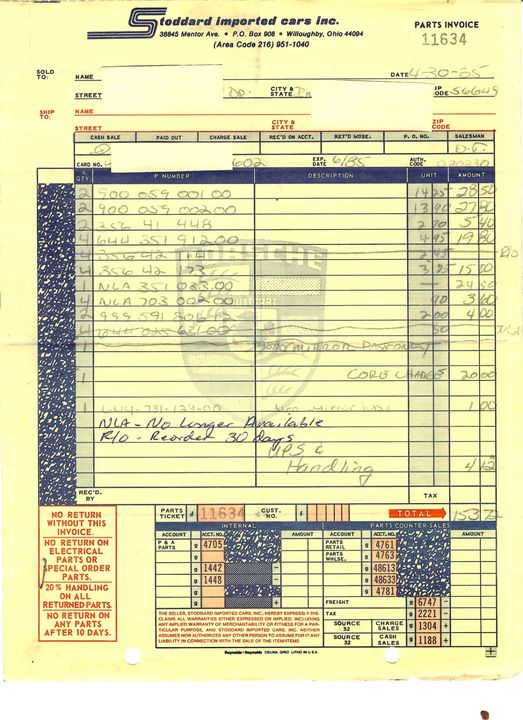 Stoddard imported cars inc.
38845 Mentor Ave. • P.O. Box 908 • Willoughby, Ohio 44094
(Area Code 216) 951-1040
PARTS INVOICE
11634
SOLD TO:
NAME
DATE 4-30-85
STREET
CITY & STATE In
ZIP CODE 56649
SHIP TO:
NAME
STREET
CITY & STATE
ZIP CODE
CASH SALE PAID OUT CHARGE SALE REC'D ON ACCT. RET'D MDSE. P.O. NO. SALESMAN
CARD NO. 602 EXP. DATE 6/85 AUTH. CODE
QTY. P NUMBER DESCRIPTION UNIT AMOUNT
2 900 059 001 00 14 25 28 50
2 900 059 002 00 13 90 27 80
2 356 41 448 2 70 5 40
4 644 351 912 00 4 95 19 80
4 356 42 R/O
4 356 42 173 3 75 15 00
1 NLA 351 00
4 NLA 703 002 00 90 3 60
2 999 591 2 00 4 00
1
CORE CHARGE 20 00
1 644-731-129-00 1 00
NLA - No Longer Available
R/o - Reorder 30 days
UPS &
Handling 4 12
REC'D. BY
TAX
PARTS TICKET d 11634 CUST. NO. f TOTAL 153 72
NO RETURN WITHOUT THIS INVOICE.
NO RETURN ON ELECTRICAL PARTS OR SPECIAL ORDER PARTS.
20% HANDLING ON ALL RETURNED PARTS.
NO RETURN ON ANY PARTS AFTER 10 DAYS.
INTERNAL
ACCOUNT ACCT. NO. AMOUNT
P & A PARTS g 4705
g 1442
g 1448
PARTS COUNTER SALES
ACCOUNT ACCT. NO. AMOUNT
PARTS RETAIL g 4761
PARTS WHLSE. g 4763
g 48613
g 48633
g 4781
FREIGHT g 6747 −
TAX g 2221 −
SOURCE 32 CHARGE SALES g 1304 +
SOURCE 32 CASH SALES g 1188 +
THE SELLER, STODDARD IMPORTED CARS, INC., HEREBY EXPRESSLY DISCLAIMS ALL WARRANTIES EITHER EXPRESSED OR IMPLIED, INCLUDING ANY IMPLIED WARRANTY OF MERCHANTABILITY OR FITNESS FOR A PARTICULAR PURPOSE, AND STODDARD IMPORTED CARS, INC. NEITHER ASSUMES NOR AUTHORIZES ANY OTHER PERSON TO ASSUME FOR IT ANY LIABILITY IN CONNECTION WITH THE SALE OF THE ITEM/ITEMS.
Reynolds+Reynolds CELINA, OHIO LITHO IN U.S.A.